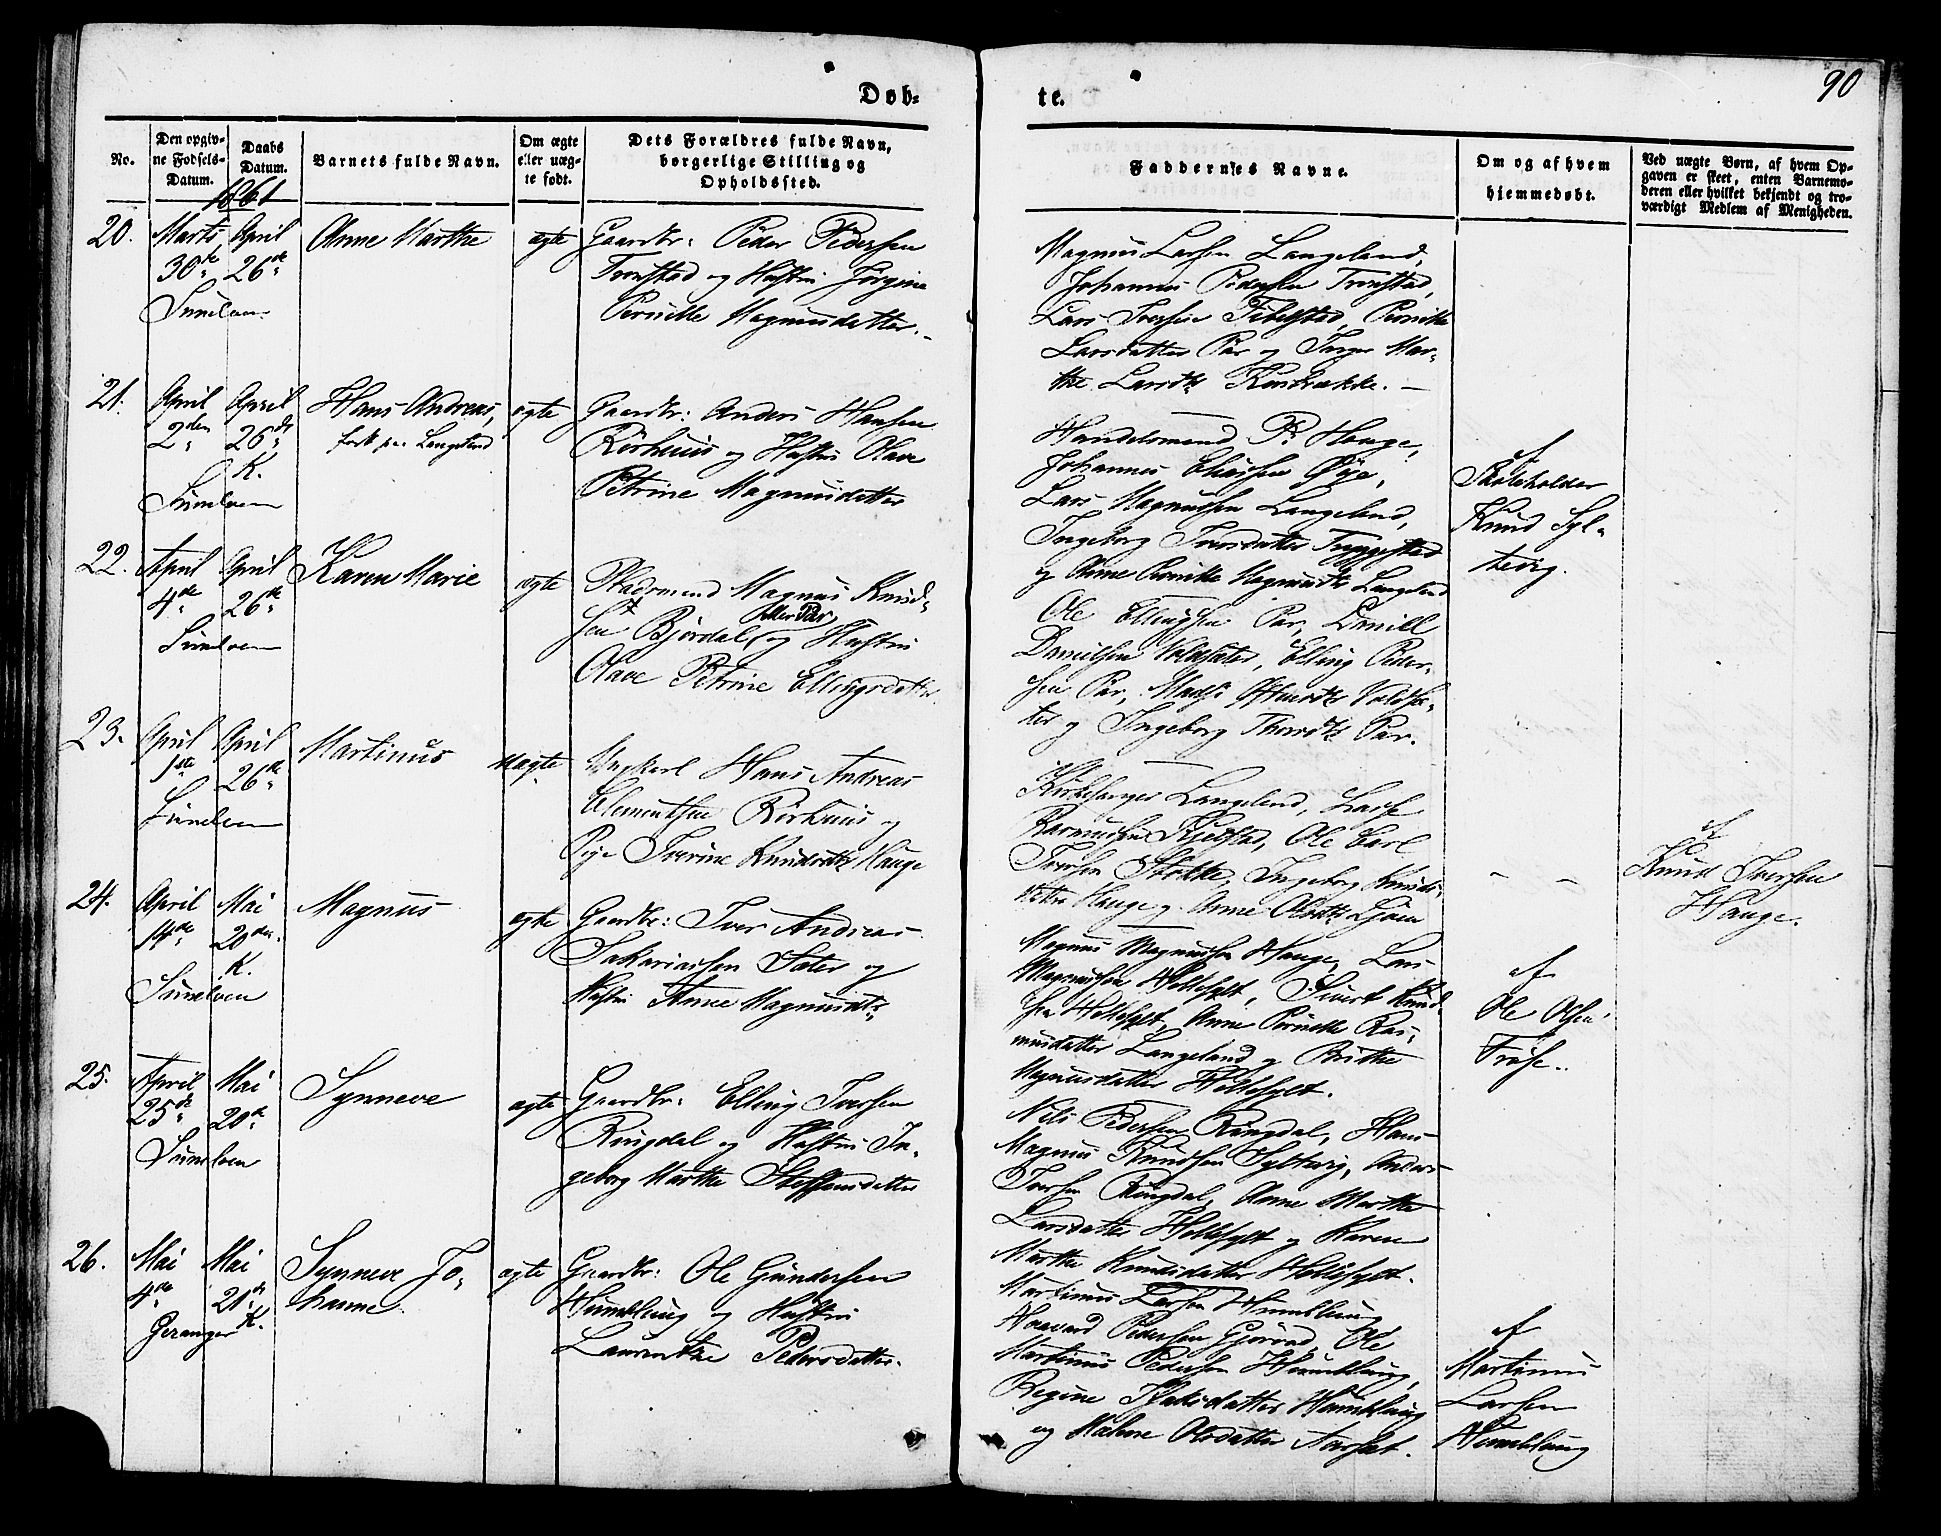 Døb=
te.
90
No.
Den opgiv-
ne Fødsels-
Datum.
Daabs
Datum.
Barnets fulde Navn.
Om ægte
eller uæg-
te født.
Dets Forældres fulde Navn,
borgerlige Stilling og
Opholdssted.
Faddernes Navne.
Om og af hvem
hjemmedøbt.
Ved uægte Børn, af hvem Op-
gaven er skeet, enten Barnemo-
deren eller hvilket bekjendt og tro-
værdigt Medlem af Menigheden.
1861
20.
Marts
30te
Sunelven
April
26de
Anne Marthe
ægte
Gaardbr: Peder Pedersen
Tronstad og Hustru Jørgine
Pernille Magnusdatter.
Magnus Larsen Langeland,
Johannes Pedersen Tronstad,
Lars Iversen Tibelstad, Pernille
Larsdatter Par og Inger Mar-
the Larsdtr
21.
April
2den
Sunelven
April
26de
K.
Hans Andreas,
Langeland
ægte
Gaardbr: Anders Hansen
Rørhuus og Hustru Olave
Petrine Magnusdatter
Handelsmand P. Hauge,
Johannes Eliassen Øye,
Lars Magnussen Langeland,
Ingeborg Iversdatter Tryggestad
og Anne Pernille Magnusdtr Langeland
af
Skoleholder
Knud Syl-
tevig.
22.
April
4de
Sunelven
April
26de
Karen Marie
ægte
Pladsmand Magnus Knud-
sen Bjørdal, eller Par, og Hustru
Olave Petrine Ellingsdatter.
Ole Ellingsen Par, Daniel
Danielsen Voldsæter, Elling Peder-
sen Par, Voldsæ-
ter og Ingeborg Par.
23.
April
1ste
Sunelven
April
26de
Martinus
uægte
Ungkarl Hans Andreas
Clementsen Rørhuus og
Pige Iverine Knudsdtr Hauge
Kirkesanger Langeland, Lasse
Rasmussen Kjelstad, Ole Carl
Iversen Stokke, Ingeborg Knuds-
Hauge og Anne Olsdtr Ljøen
af
Knud Iversen
Hauge.
24.
April
14de
Sunelven
Mai
20de
K.
Magnus
ægte
Gaardbr: Iver Andreas
Sakariassen Sæter og
Hustru Anne Magnusdtr
Magnus Magnussen Hauge, Lars
Magnussen Hellesylt, Sivert Knud-
sen Hellesylt, Anne Pernille Ras-
musdatter Langeland og Brithe
Magnusdatter Hellesylt.
af
Ole Olsen
Frøse.
25.
April
25de
Sunelven
Mai
20de
Synneve
ægte
Gaardbr: Elling Iversen
Ringdal og Hustru In-
geborg Marthe Steffensdatter
Nils Pedersen Ringdal, Hans
Magnus Knudsen Syltevig, Anders
Iversen Ringdal, Anne Marthe
Larsdatter Hellesylt og Karen
Marthe Knudsdatter Hellesylt.
26.
Mai
4de
Geranger
Mai
21de
K.
Synneve Jo-
hanne.
ægte
Gaardbr: Ole Gundersen
Humblung og Hustru
Laurenthe Pedersdatter.
Martinus Larsen Humblung
Haavard Pedersen Gjørvad, Ole
Martinus Pedersen Humblung,
Regine Humblung
og Malene Olsdatter Aarset.
af
Martinus
Larsen
Humblung